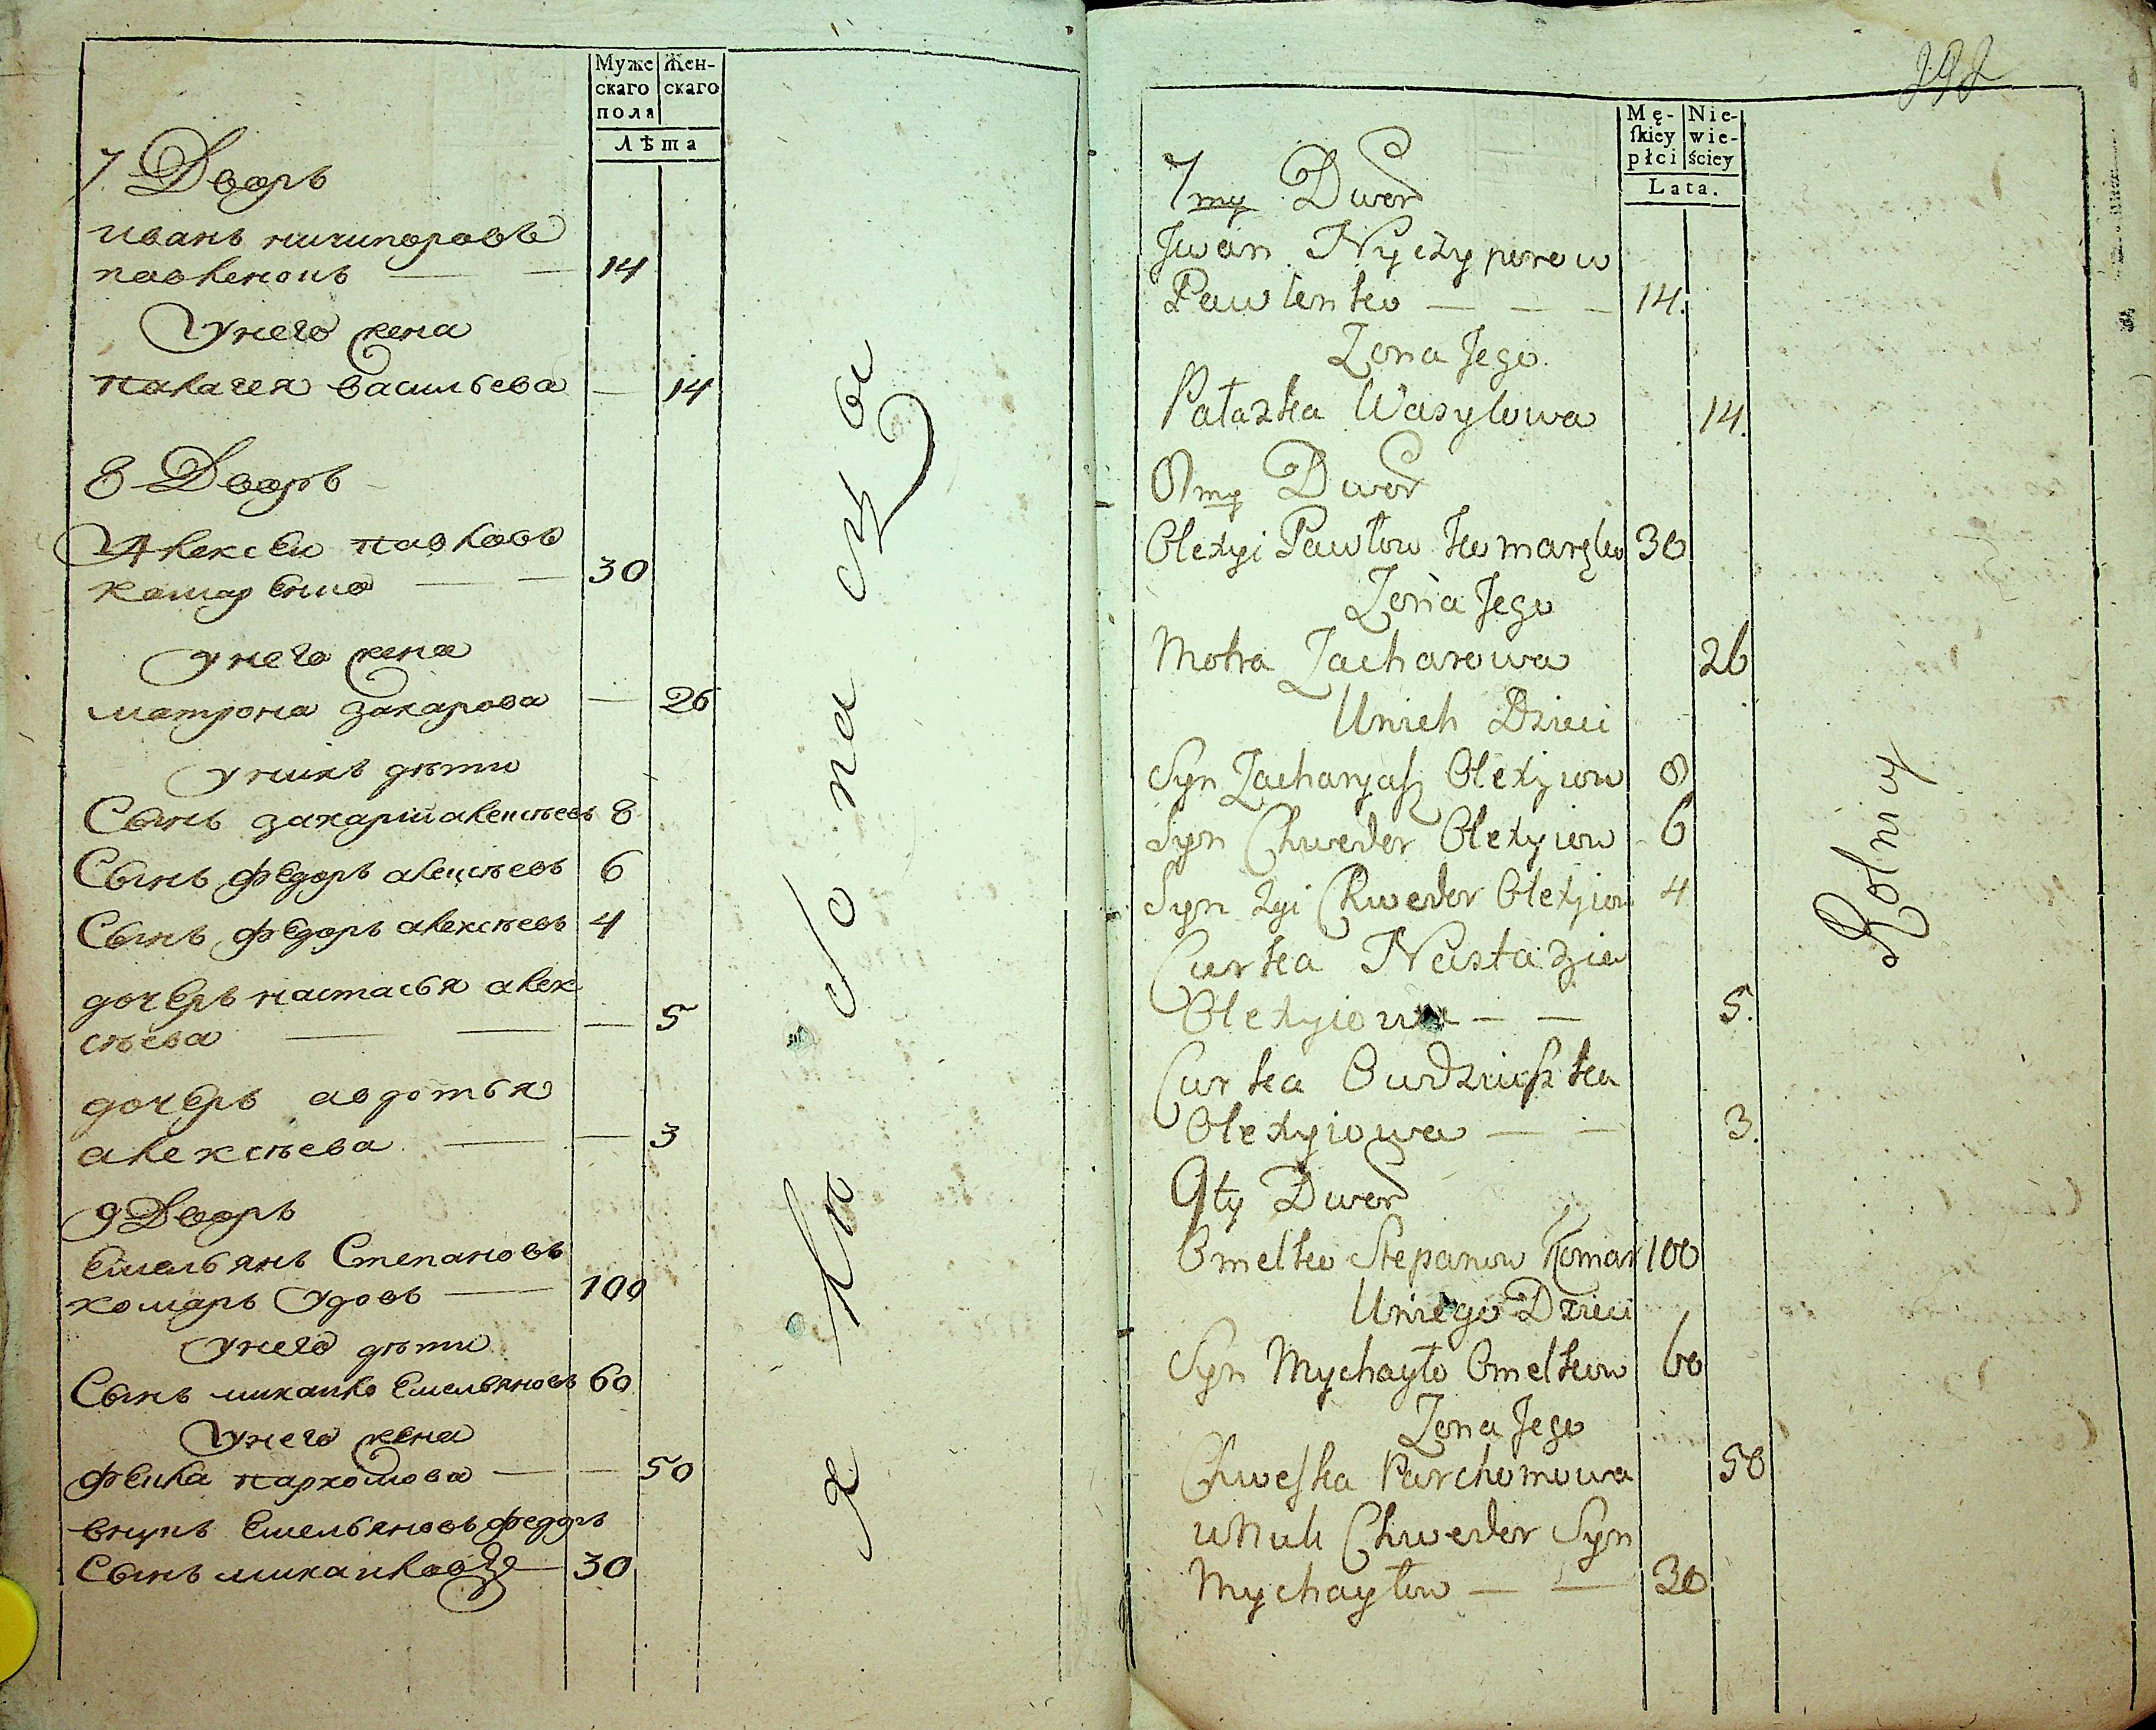 Муже
скаго
пола
Жен-
скаго
Лѣта
7. Дворъ
иванъ ничипоровъ
павленокъ — — 14
у него жена
палагея васильева — 14
8 Дворъ
Алексѣй павловъ
комаренко — — 30
у него жена
матрона захарова — 26
у нихъ дѣти
Сынъ захарий алексѣевъ 8
Сынъ федоръ алексѣевъ 6
Сынъ федоръ алексѣевъ 4
дочерь настасья алек
сѣева — — — 5
дочерь авдотья
алексѣева — — 3
9 Дворъ
Емельянъ Степановъ
комаръ удовъ — 100
у него дѣти
Сынъ михайло Емельяновъ 60
у него жена
феска пархомова — — 50
внукъ Емельяновъ федоръ
Сынъ михайловъ — 30
Mę-
ſkiey
płci
Nie-
wie-
ściey
Lata.
7my Dwor
Jwan Nyczyporow
Pawlenko — — — 14.
Zona Jego
Pałazka Wasylowa 14.
8my Dwor
Olexyi Pawłow Komaręko 30
Zona Jego
Motra Zacharowa 26
Unich Dzieci
Syn Zacharyaſz Olexyiow 8
Syn Chwedor Olexyiow 6
Syn 2gi Chwedor Olexyiow 4
Curka Nastazia
Olexyiowa — — 5.
Curka Owdziuſzka
Olexyiowa — — 3.
9ty Dwor
Omelko Stepanow Komar 100
Uniego Dzieci
Syn Mychayło Omelkow 60
Zona Jego
Chweſka Parchomowa 50
wnuk Chwedor Syn
Mychayłow — — 30
Rolnicy